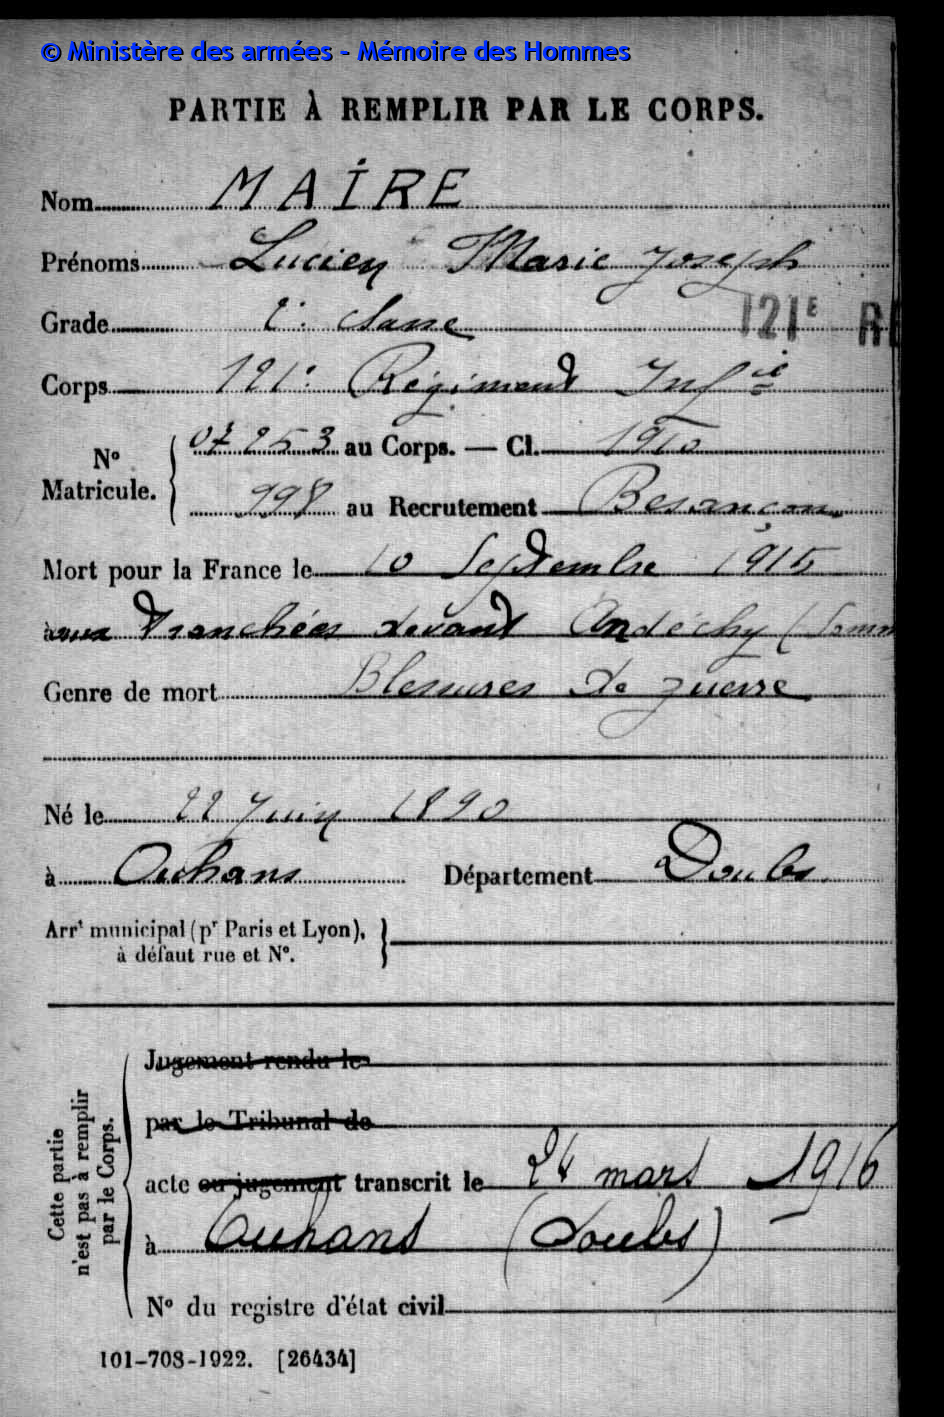 © Ministère des armées - Mémoire des Hommes
PARTIE À REMPLIR PAR LE CORPS.
Nom MAIRE
Prénoms Lucien Marie Joseph
Grade 2e classe
121E R
Corps 121e Régiment Infie
N° Matricule. 07253 au Corps. — Cl. 1910
998 au Recrutement Besançon
Mort pour la France le 10 Septembre 1915
à aux tranchées devant Andéchy (Somm
Genre de mort Blessures de guerre
Né le 22 Juin 1890
à Ouhans Département Doubs.
Arrt municipal (pr Paris et Lyon),
à défaut rue et N°.
Cette partie n'est pas à remplir par le Corps.
Jugement rendu le
par le Tribunal de
acte ou jugement transcrit le 24 mars 1916
à Ouhans (Doubs)
N° du registre d'état civil
101-708-1922. [26434]